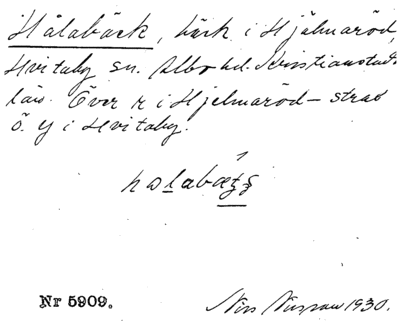 Hålabäck, bäck i Hjälmaröd,
Hvitaby sn. Albo hd. Kristianstads
län. Över r i Hjelmaröd – strax
ö. y i Hvitaby.
Nr 5909.
1930.